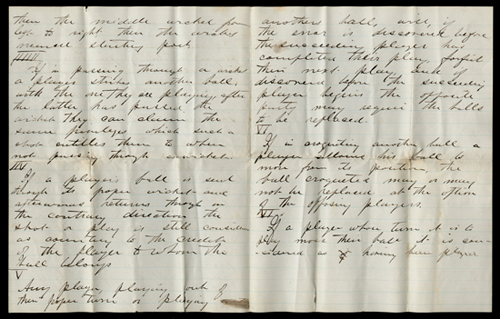 then the middle wicket from
left to right then the
starting post
IIII
If in passing through a wicket
a player strikes another ball
with the one they are playing, after
the latter has passed the
wicket they can claim the
same privileges which such a
shot entitles them to when
not passing through a wicket
IV
If a player's ball is sent
through its proper wicket and
afterwards returns through on
the contrary direction the
shot a play is still considered
as counting to the credit
of the player to whom the
ball belongs
V
Any player, playing out of
their proper turn or playing
another ball, will, if
the error is discovered before
the succeeding player has
completed their play, forfeit
their next play, and if
discovered before the succeeding
player begins the opposite
party may require the balls
to be replaced.
VI
If in croqueting another ball a
player allows his ball to
move from its position the
ball croqueted may or may
not be replaced at the option
of the opposing players.
VII
If a player whose turn it is to
play moves their ball it is
considered as having been played